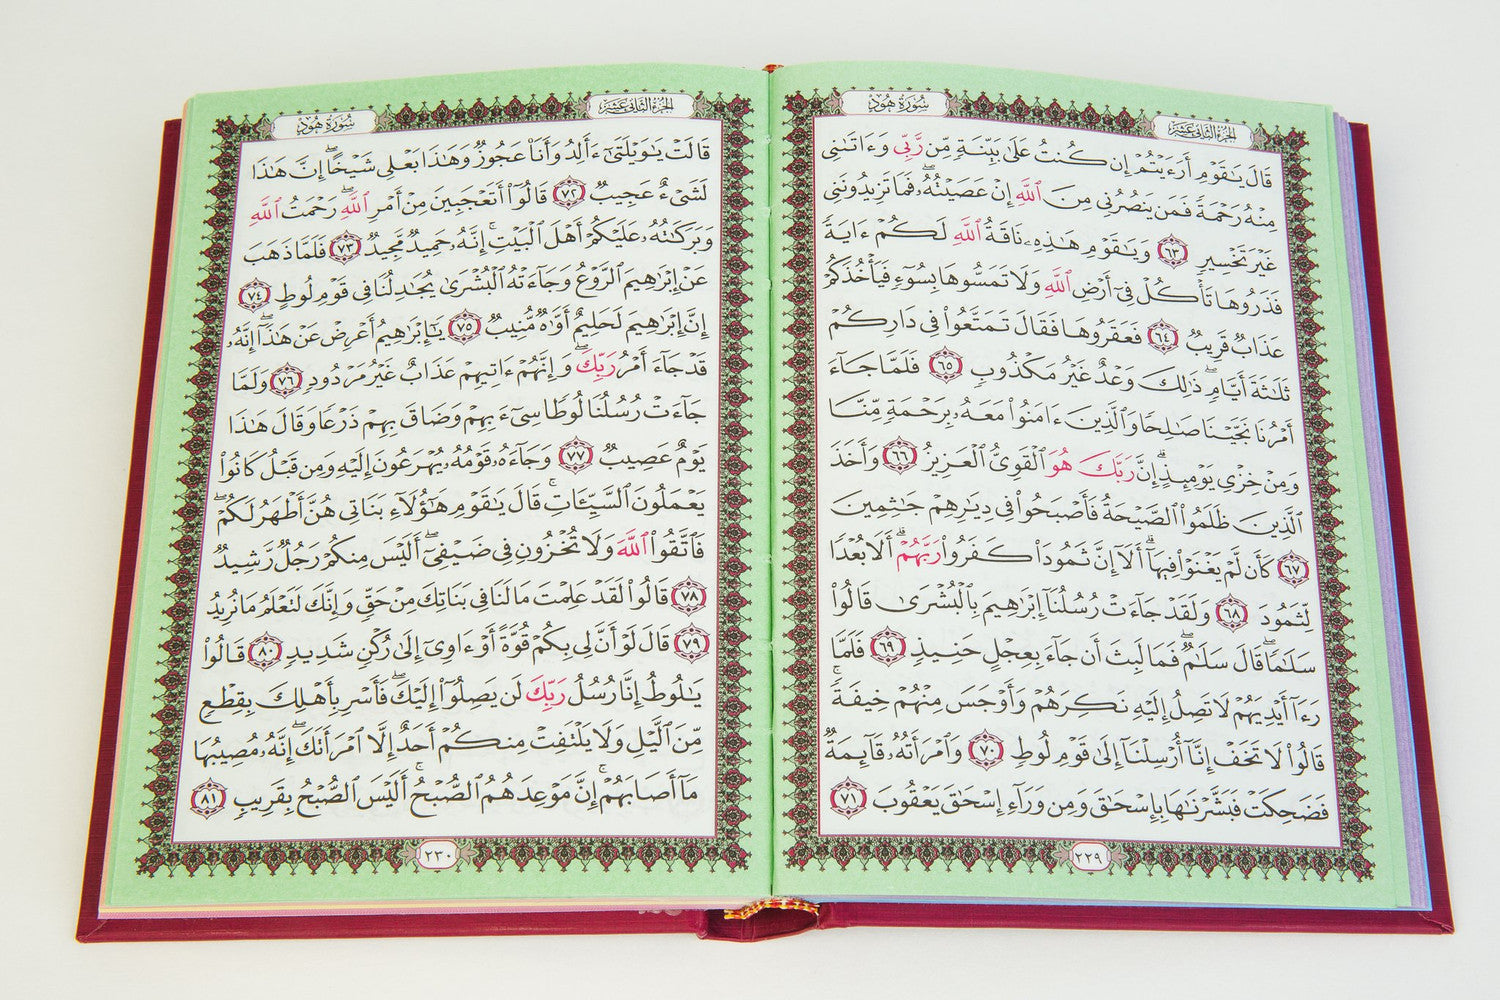 سُورَةُ هُودٍ
الجُزْءُ الثَّانِي عَشَرَ
قَالَ يَـٰقَوْمِ أَرَءَيْتُمْ إِن كُنتُ عَلَىٰ بَيِّنَةٍ مِّن رَّبِّى وَءَاتَىٰنِى
مِنْهُ رَحْمَةً فَمَن يَنصُرُنِى مِنَ ٱللَّهِ إِنْ عَصَيْتُهُۥ ۖ فَمَا تَزِيدُونَنِى
غَيْرَ تَخْسِيرٍ ٦٣ وَيَـٰقَوْمِ هَـٰذِهِۦ نَاقَةُ ٱللَّهِ لَكُمْ ءَايَةً
فَذَرُوهَا تَأْكُلْ فِىٓ أَرْضِ ٱللَّهِ وَلَا تَمَسُّوهَا بِسُوٓءٍ فَيَأْخُذَكُمْ
عَذَابٌ قَرِيبٌ ٦٤ فَعَقَرُوهَا فَقَالَ تَمَتَّعُوا۟ فِى دَارِكُمْ
ثَلَـٰثَةَ أَيَّامٍ ۖ ذَٰلِكَ وَعْدٌ غَيْرُ مَكْذُوبٍ ٦٥ فَلَمَّا جَآءَ
أَمْرُنَا نَجَّيْنَا صَـٰلِحًا وَٱلَّذِينَ ءَامَنُوا۟ مَعَهُۥ بِرَحْمَةٍ مِّنَّا
وَمِنْ خِزْىِ يَوْمِئِذٍ ۗ إِنَّ رَبَّكَ هُوَ ٱلْقَوِىُّ ٱلْعَزِيزُ ٦٦ وَأَخَذَ
ٱلَّذِينَ ظَلَمُوا۟ ٱلصَّيْحَةُ فَأَصْبَحُوا۟ فِى دِيَـٰرِهِمْ جَـٰثِمِينَ
٦٧ كَأَن لَّمْ يَغْنَوْا۟ فِيهَآ ۗ أَلَآ إِنَّ ثَمُودَا۟ كَفَرُوا۟ رَبَّهُمْ ۗ أَلَا بُعْدًا
لِّثَمُودَ ٦٨ وَلَقَدْ جَآءَتْ رُسُلُنَآ إِبْرَٰهِيمَ بِٱلْبُشْرَىٰ قَالُوا۟
سَلَـٰمًا ۖ قَالَ سَلَـٰمٌ ۖ فَمَا لَبِثَ أَن جَآءَ بِعِجْلٍ حَنِيذٍ ٦٩ فَلَمَّا
رَءَآ أَيْدِيَهُمْ لَا تَصِلُ إِلَيْهِ نَكِرَهُمْ وَأَوْجَسَ مِنْهُمْ خِيفَةً ۚ
قَالُوا۟ لَا تَخَفْ إِنَّآ أُرْسِلْنَآ إِلَىٰ قَوْمِ لُوطٍ ٧٠ وَٱمْرَأَتُهُۥ قَآئِمَةٌ
فَضَحِكَتْ فَبَشَّرْنَـٰهَا بِإِسْحَـٰقَ وَمِن وَرَآءِ إِسْحَـٰقَ يَعْقُوبَ ٧١
٢٢٩
الجُزْءُ الثَّانِي عَشَرَ
سُورَةُ هُودٍ
قَالَتْ يَـٰوَيْلَتَىٰٓ ءَأَلِدُ وَأَنَا۠ عَجُوزٌ وَهَـٰذَا بَعْلِى شَيْخًا ۖ إِنَّ هَـٰذَا
لَشَىْءٌ عَجِيبٌ ٧٢ قَالُوٓا۟ أَتَعْجَبِينَ مِنْ أَمْرِ ٱللَّهِ ۖ رَحْمَتُ ٱللَّهِ
وَبَرَكَـٰتُهُۥ عَلَيْكُمْ أَهْلَ ٱلْبَيْتِ ۚ إِنَّهُۥ حَمِيدٌ مَّجِيدٌ ٧٣ فَلَمَّا ذَهَبَ
عَنْ إِبْرَٰهِيمَ ٱلرَّوْعُ وَجَآءَتْهُ ٱلْبُشْرَىٰ يُجَـٰدِلُنَا فِى قَوْمِ لُوطٍ ٧٤
إِنَّ إِبْرَٰهِيمَ لَحَلِيمٌ أَوَّٰهٌ مُّنِيبٌ ٧٥ يَـٰٓإِبْرَٰهِيمُ أَعْرِضْ عَنْ هَـٰذَآ ۖ إِنَّهُۥ
قَدْ جَآءَ أَمْرُ رَبِّكَ ۖ وَإِنَّهُمْ ءَاتِيهِمْ عَذَابٌ غَيْرُ مَرْدُودٍ ٧٦ وَلَمَّا
جَآءَتْ رُسُلُنَا لُوطًا سِىٓءَ بِهِمْ وَضَاقَ بِهِمْ ذَرْعًا وَقَالَ هَـٰذَا
يَوْمٌ عَصِيبٌ ٧٧ وَجَآءَهُۥ قَوْمُهُۥ يُهْرَعُونَ إِلَيْهِ وَمِن قَبْلُ كَانُوا۟
يَعْمَلُونَ ٱلسَّيِّـَٔاتِ ۚ قَالَ يَـٰقَوْمِ هَـٰٓؤُلَآءِ بَنَاتِى هُنَّ أَطْهَرُ لَكُمْ ۖ
فَٱتَّقُوا۟ ٱللَّهَ وَلَا تُخْزُونِ فِى ضَيْفِىٓ ۖ أَلَيْسَ مِنكُمْ رَجُلٌ رَّشِيدٌ
٧٨ قَالُوا۟ لَقَدْ عَلِمْتَ مَا لَنَا فِى بَنَاتِكَ مِنْ حَقٍّ وَإِنَّكَ لَتَعْلَمُ مَا نُرِيدُ
٧٩ قَالَ لَوْ أَنَّ لِى بِكُمْ قُوَّةً أَوْ ءَاوِىٓ إِلَىٰ رُكْنٍ شَدِيدٍ ٨٠ قَالُوا۟
يَـٰلُوطُ إِنَّا رُسُلُ رَبِّكَ لَن يَصِلُوٓا۟ إِلَيْكَ ۖ فَأَسْرِ بِأَهْلِكَ بِقِطْعٍ
مِّنَ ٱلَّيْلِ وَلَا يَلْتَفِتْ مِنكُمْ أَحَدٌ إِلَّا ٱمْرَأَتَكَ ۖ إِنَّهُۥ مُصِيبُهَا
مَآ أَصَابَهُمْ ۚ إِنَّ مَوْعِدَهُمُ ٱلصُّبْحُ ۚ أَلَيْسَ ٱلصُّبْحُ بِقَرِيبٍ ٨١
٢٣٠